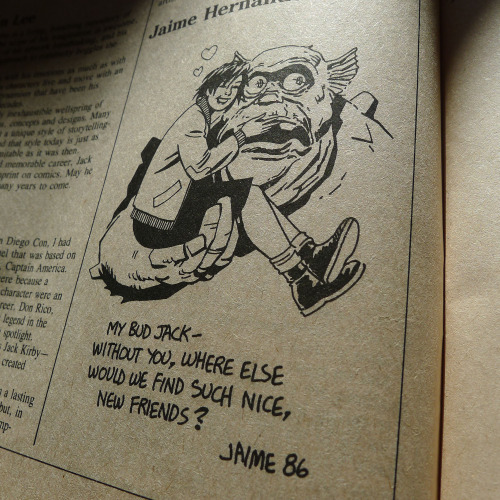 Jaime Hernand
on Lee
as much as with
Eve and move with an
that have been his
inexhaustible wellspring of
, concepts and designs. Many
a unique style of storytelling-
that style today is just as
as it was then.
memorable career, Jack
print on comics. May he
any years to come.
n Diego Con, I had
nel that was based on
. Captain America.
ere because a
character were an
reer. Don Rico,
legend in the
spotlight.
s Jack Kirby—
created
n a lasting
but, in
mp-
MY BUD JACK—
WITHOUT YOU, WHERE ELSE
WOULD WE FIND SUCH NICE,
NEW FRIENDS?
JAIME 86